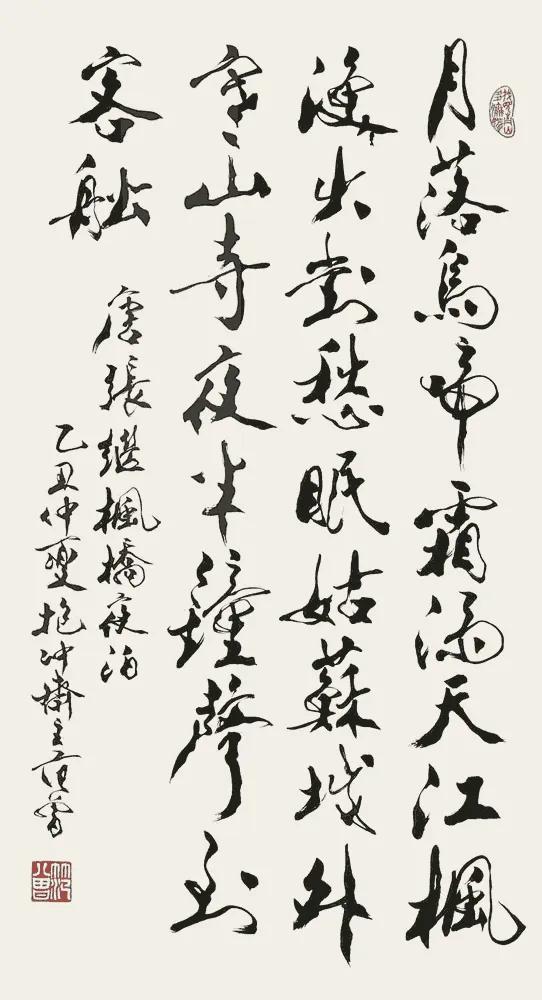 月落烏啼霜滿天江楓
漁火對愁眠姑蘇城外
寒山寺夜半鐘聲到
客船
唐張繼楓橋夜泊
乙丑仲夏抱冲齋主范曾